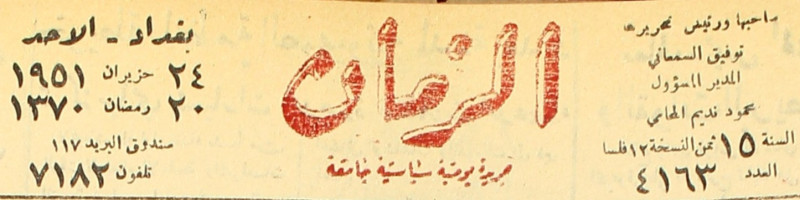 صاحبها ورئيس تحريرها
توفيق السمعاني
المدير المسؤول
محمود نديم المحامي
السنة ١٥ ثمن النسخة ١٢ فلسا
العدد ٤١٦٣
الزمان
جريدة يومية سياسية جامعة
بغداد - الاحد
٢٤ حزيران ١٩٥١
٢٠ رمضان ١٣٧٠
صندوق البريد ١١٧
تلفون ٧١٨٢